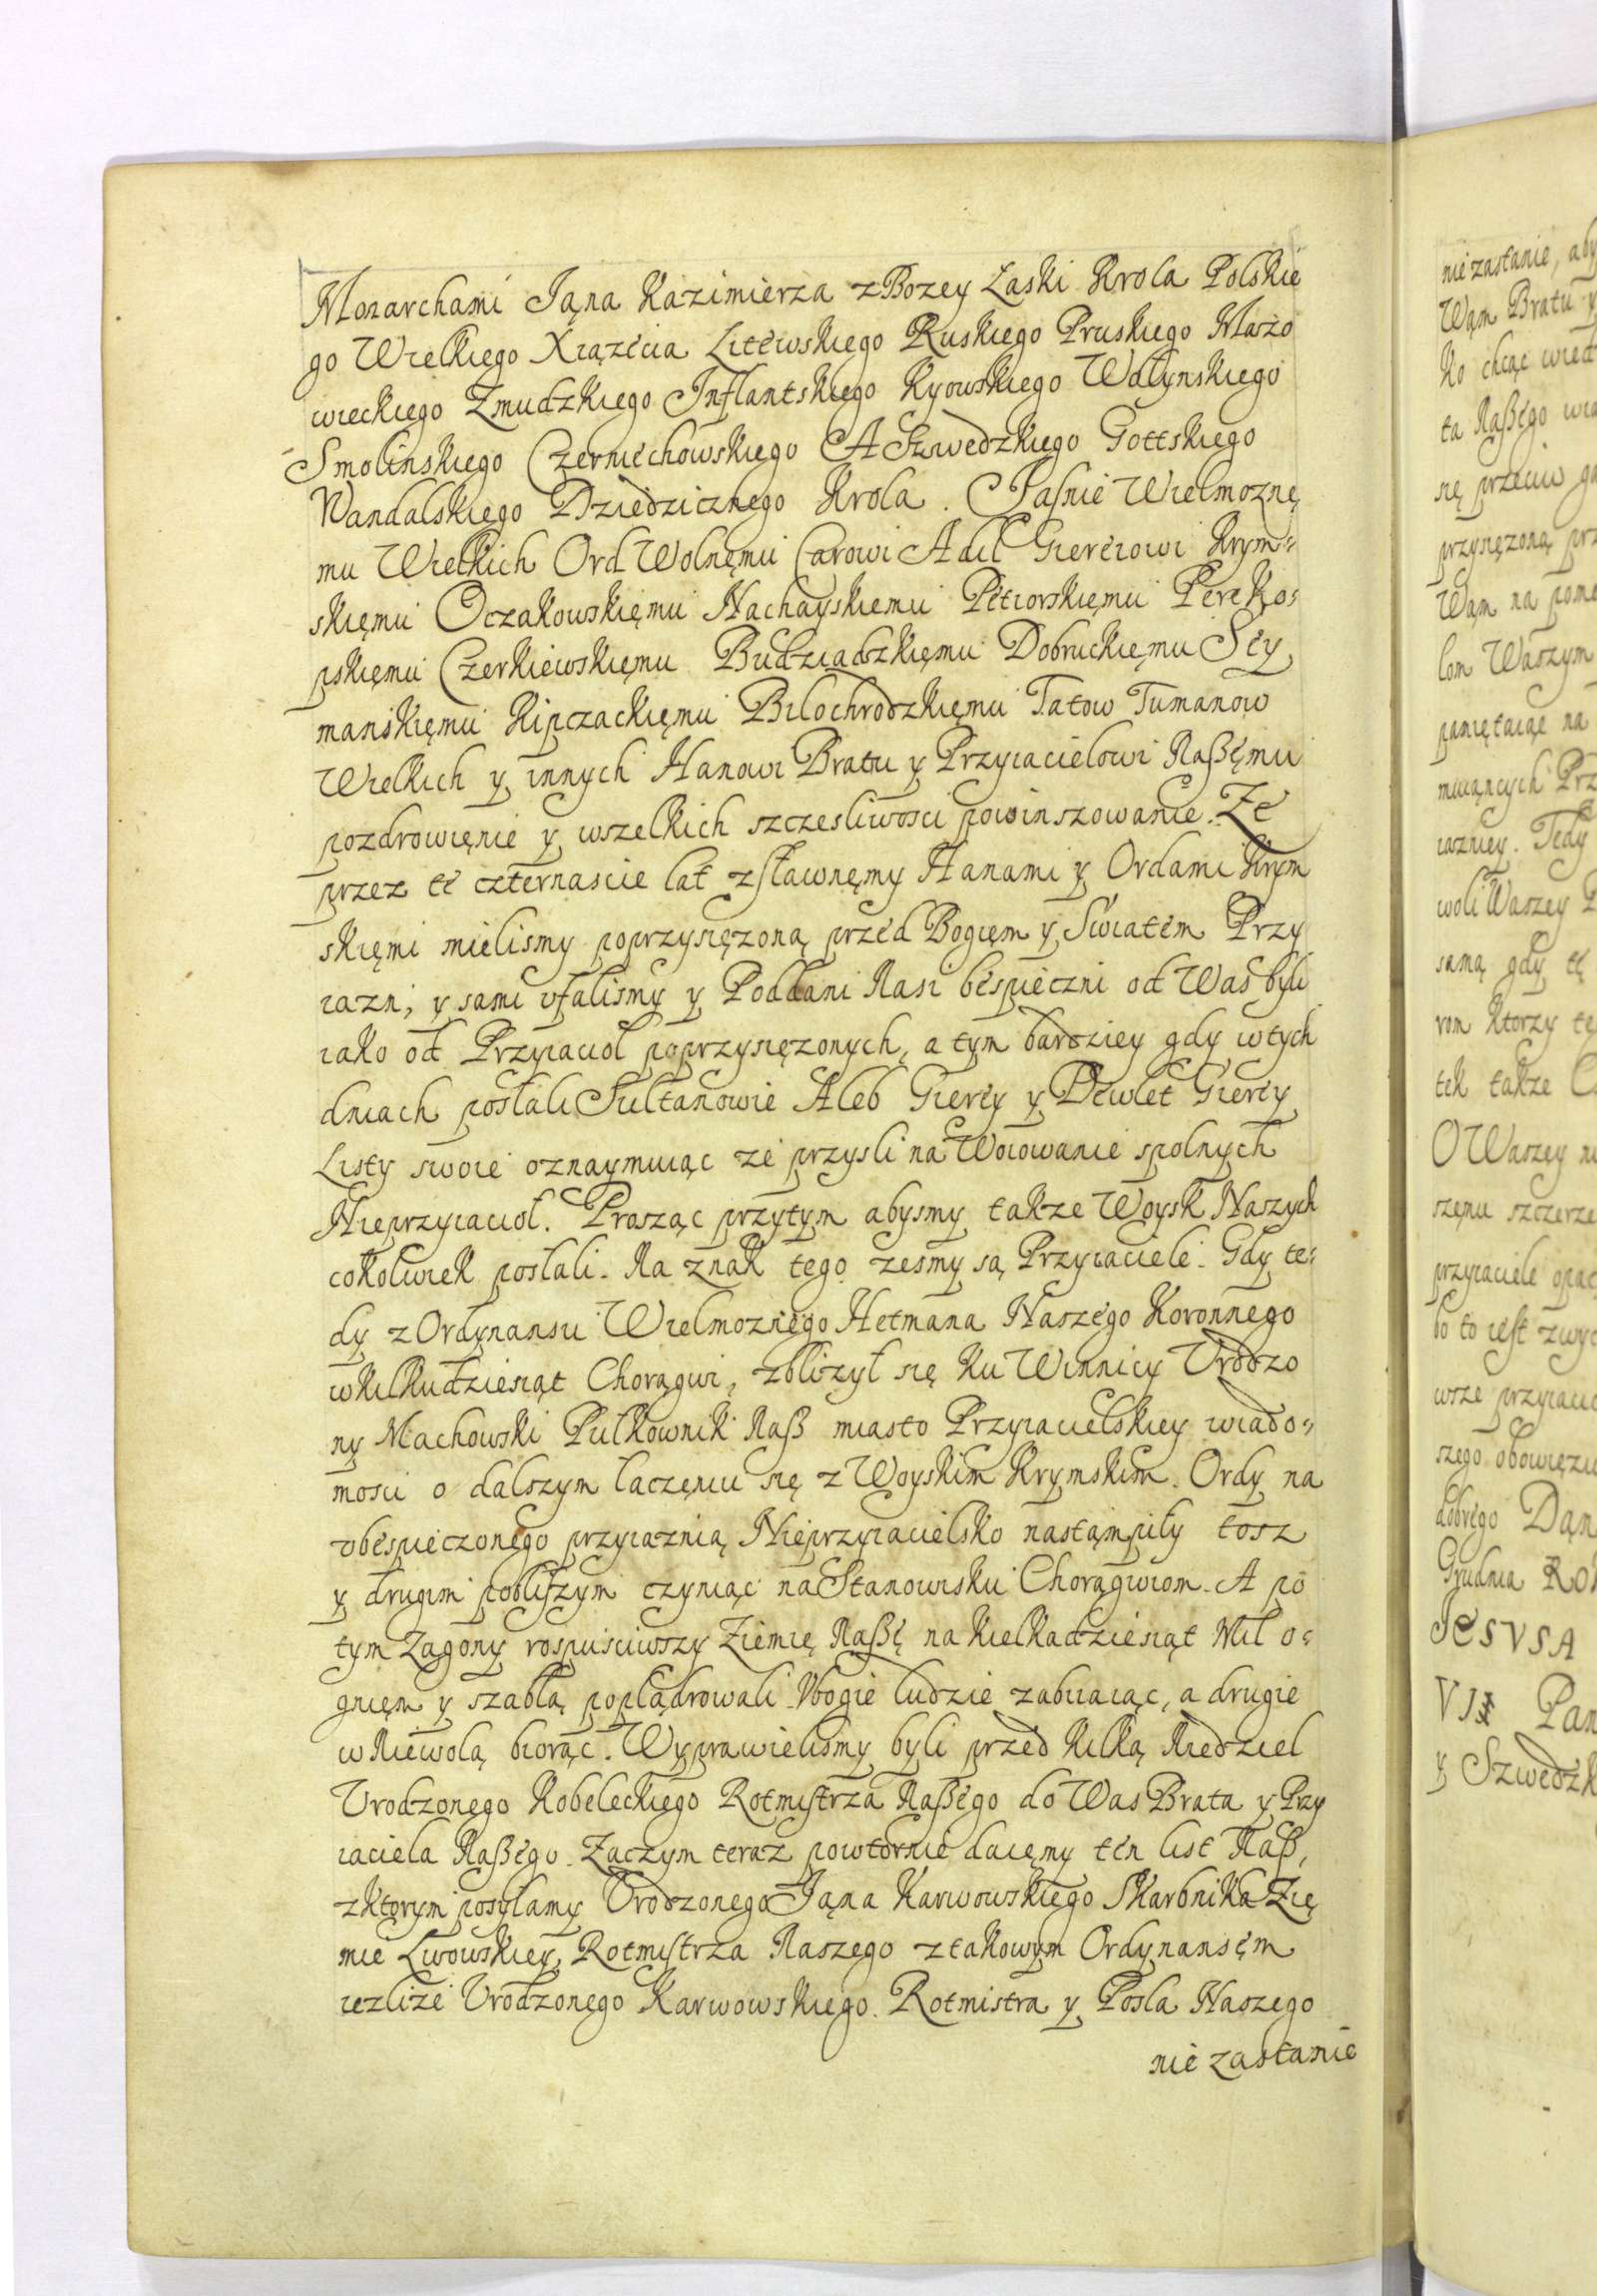 Monarchami Jąna Kazimierza z Bozey Łaski Krola Polskie
go Wielkiego Xiązęcia Litewskiego Ruskiego Pruskiego Mazo
wieckiego Zmudzkiego Inflantskiego Kyowskiego Wołynskiego
Smolinskiego Czerniechowskiego A Szwedzkiego Gottskiego
Wandalskięgo Dziedzicznego Krola. Jasnie Wielmoznę
mu Wielkich Ord Wolnęmu Carowi Adil Gierciowi Krym=
skięmu Oczakowskięmu Nachayskiemu Petiorskięmu Pereko=
pskięmu Czerkiewskięmu Budziadzkięmu Dobruckięmu Sey
manskięmu Kipczackięmu Bilochrodzkięmu Tatow Tumanow
Wielkich y innych Hanowi Bratu y Przyiacielowi Naßęmu
pozdrowięnie y wszelkich szczesliwosci powinszowanie. Ze
przez te czternascie lat z sławnęmy Hanami y Ordami Krym
skięmi mielismy poprzysięzoną przed Bogięm y Swiatem Przy
iazn, y sami vfalismy y Poddani Nasi bespieczni od Was byli
iako od Przyiacioł poprzysięzonych, a tym bardziey gdy w tych
dniach posłali Sułtanowie Aleb Gierey y Dewlet Gierey
Listy swoie oznaymuiąc ze przysli na Woiowanie spolnych
Nieprzyiacioł. Prosząc przytym abysmy takze Woysk Naszych
cokolwiek posłali. Na znak tego zesmy są Przyiaciele. Gdy te=
dy z Ordynansu Wielmoznego Hetmana Naszego Koronnego
w kilkudziesiąt Chorągwi, zblizył się ku Winnicy Vrodzo
ny Machowski Pułkownik Naß miasto Przyiacielskiey wiado=
mosci o dalszym łaczęniu się z Woyskim Krymskim. Ordy na
vbespieczonego przyiaznią Nieprzyiacielsko nastąmpiły tosz
y drugim pobliszym czyniąc na Stanowisku Chorągwiom. A po
tym Zagony rospusciwszy Ziemię Naßę na kielkadziesiąt Mil o=
gnięm y szablą poplądrowali Vbogie ludzie zabiiaiąc, a drugie
w Niewolą biorąc. Wyprawielismy byli przed kilką Niedziel
Vrodzonego Kobeleckięgo Rotmistrza Naßego do Was Brata y Przy
iaciela Naßego. Zaczym teraz powtornie daięmy ten list Naß,
z ktorym posyłamy Vrodzonego Jąna Karwowskiego Skarbnika Zię
mie Lwowskiey, Rotmistrza Naszego z takowym Ordynansęm
iezlize Vrodzonego Karwowskiego Rotmistra y Posla Naszego
nie zastanie
nie zastanie, aby
Wąm Bratu y
ko chcąc wied
ta Naßego
się przeciw
przysięzoną
Wąm na pom
lom Waszym
pamiętaiąc na
muiących Prz
iazniey. Tedy
woli Waszey
samą gdy tę
rom ktorzy tę
tek takze
O Waszey
szęmu szczerze
przyiaciele
bo to iest zwyc
wsze przyiaci
szego obowięzu
dobrego Dąn
Grudnia
JESVSA
Pan
y Szwedzk